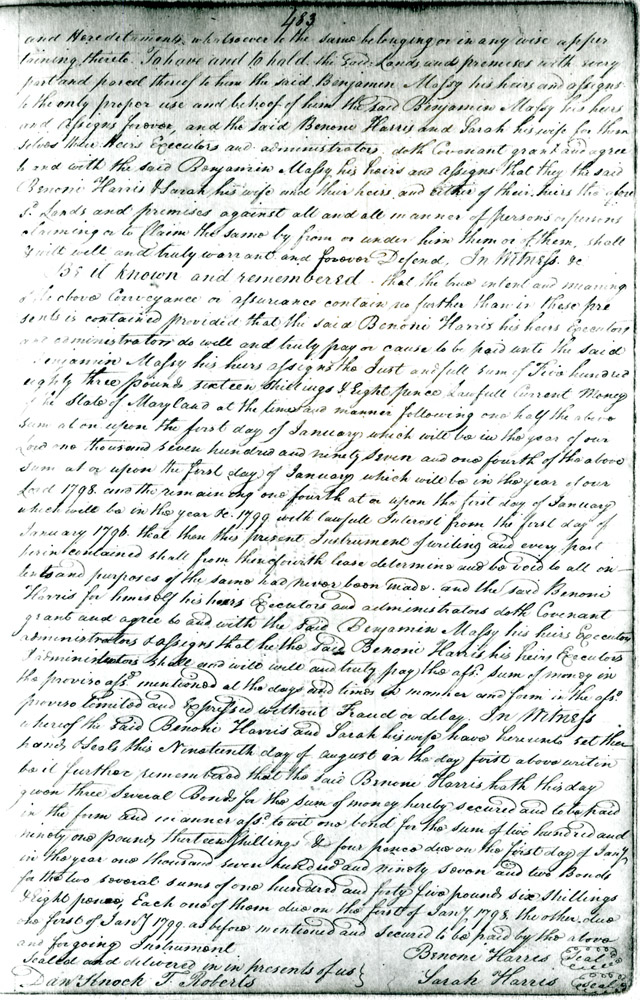 483
and Hereditaments whatsoever to the same belonging or in any wise apper
taining thereto. To have and to hold the said Lands and premises with every
part and parcel thereof to him the said Benjamin Massy his heirs and assigns
to the only proper use and behoof of him the said Benjamin Massy his heirs
and assigns forever, and the said Benone Harris and Sarah his wife for them
selves their heirs Executors and administrators, doth Covenant grant and agree
to and with the said Benjamin Massy his heirs and assigns that they the said
Benoni Harris & Sarah his wife and their heirs and either of their heirs the above
sd. Lands and premises against all and all manner of persons or persons
claiming or to Claim the same by from or under him them or of them, shall
& will well and truly warrant and forever Defend, In Witness &c
Be it known and remembered that the true intent and meaning
of the above Conveyance or assurance contain no further than in these pre
sents is contained provided that the said Benoni Harris his heirs Executors
and administrators do well and truly pay or cause to be paid unto the said
Benjamin Massy his heirs assigns the Just and full sum of Five hundred
eighty three pounds sixteen Shillings & Eight pence Lawfull Current Money
of the State of Maryland at the time and manner following one half the above
sum at or upon the first day of January which will be in the year of our
Lord one thousand seven hundred and ninety seven and one fourth of the above
sum at or upon the first day of January which will be in the year of our
Lord 1798. and the remaining one fourth at or upon the first day of January
which will be in the year &c. 1799 with lawfull Interest from the first day of
January 1796. that then this present Instrument of writing and every part
herin contained shall from thenceforth cease determine and be void to all in-
tents and purposes as the same had never been made. and the said Benoni
Harris for himself his heirs Executors and administrators doth Covenant
grant and agree to and with the said Benjamin Massy his heirs Executors
administrators & assigns that he the said Benoni Harris his heirs Executors
& administrators shall and will well and truly pay the afsd. sum of money in
the proviso afsd. mentioned at the days and times in manner and form in the afsd.
proviso limited and Expressed without Fraud or delay. In Witness
whereof the said Benoni Harris and Sarah his wife have hereunto set their
hands & Seals this Nineteenth day of august on the day first above writen
be it further remembered that the said Benone Harris hath this day
given three several Bonds for the sum of money hereby secured and to be paid
in the form and manner afsd. to wit one bond for the sum of two hundred and
ninety one pounds thirteen shillings & four pence due on the first day of Jany.
in the year one thousand seven hundred and ninety seven and two Bonds
for the two several sums of one hundred and forty five pounds six shillings
& Eight pence, Each one of them due on the first of Jany 1798 the other due
the first of Jany 1799 as before mentioned and secured to be paid by the above
and forgoing Instrument
Benone Harris Seal
Sealed and delivered in in presents of us
Sarah Harris Seal
Danl Knock J. Roberts